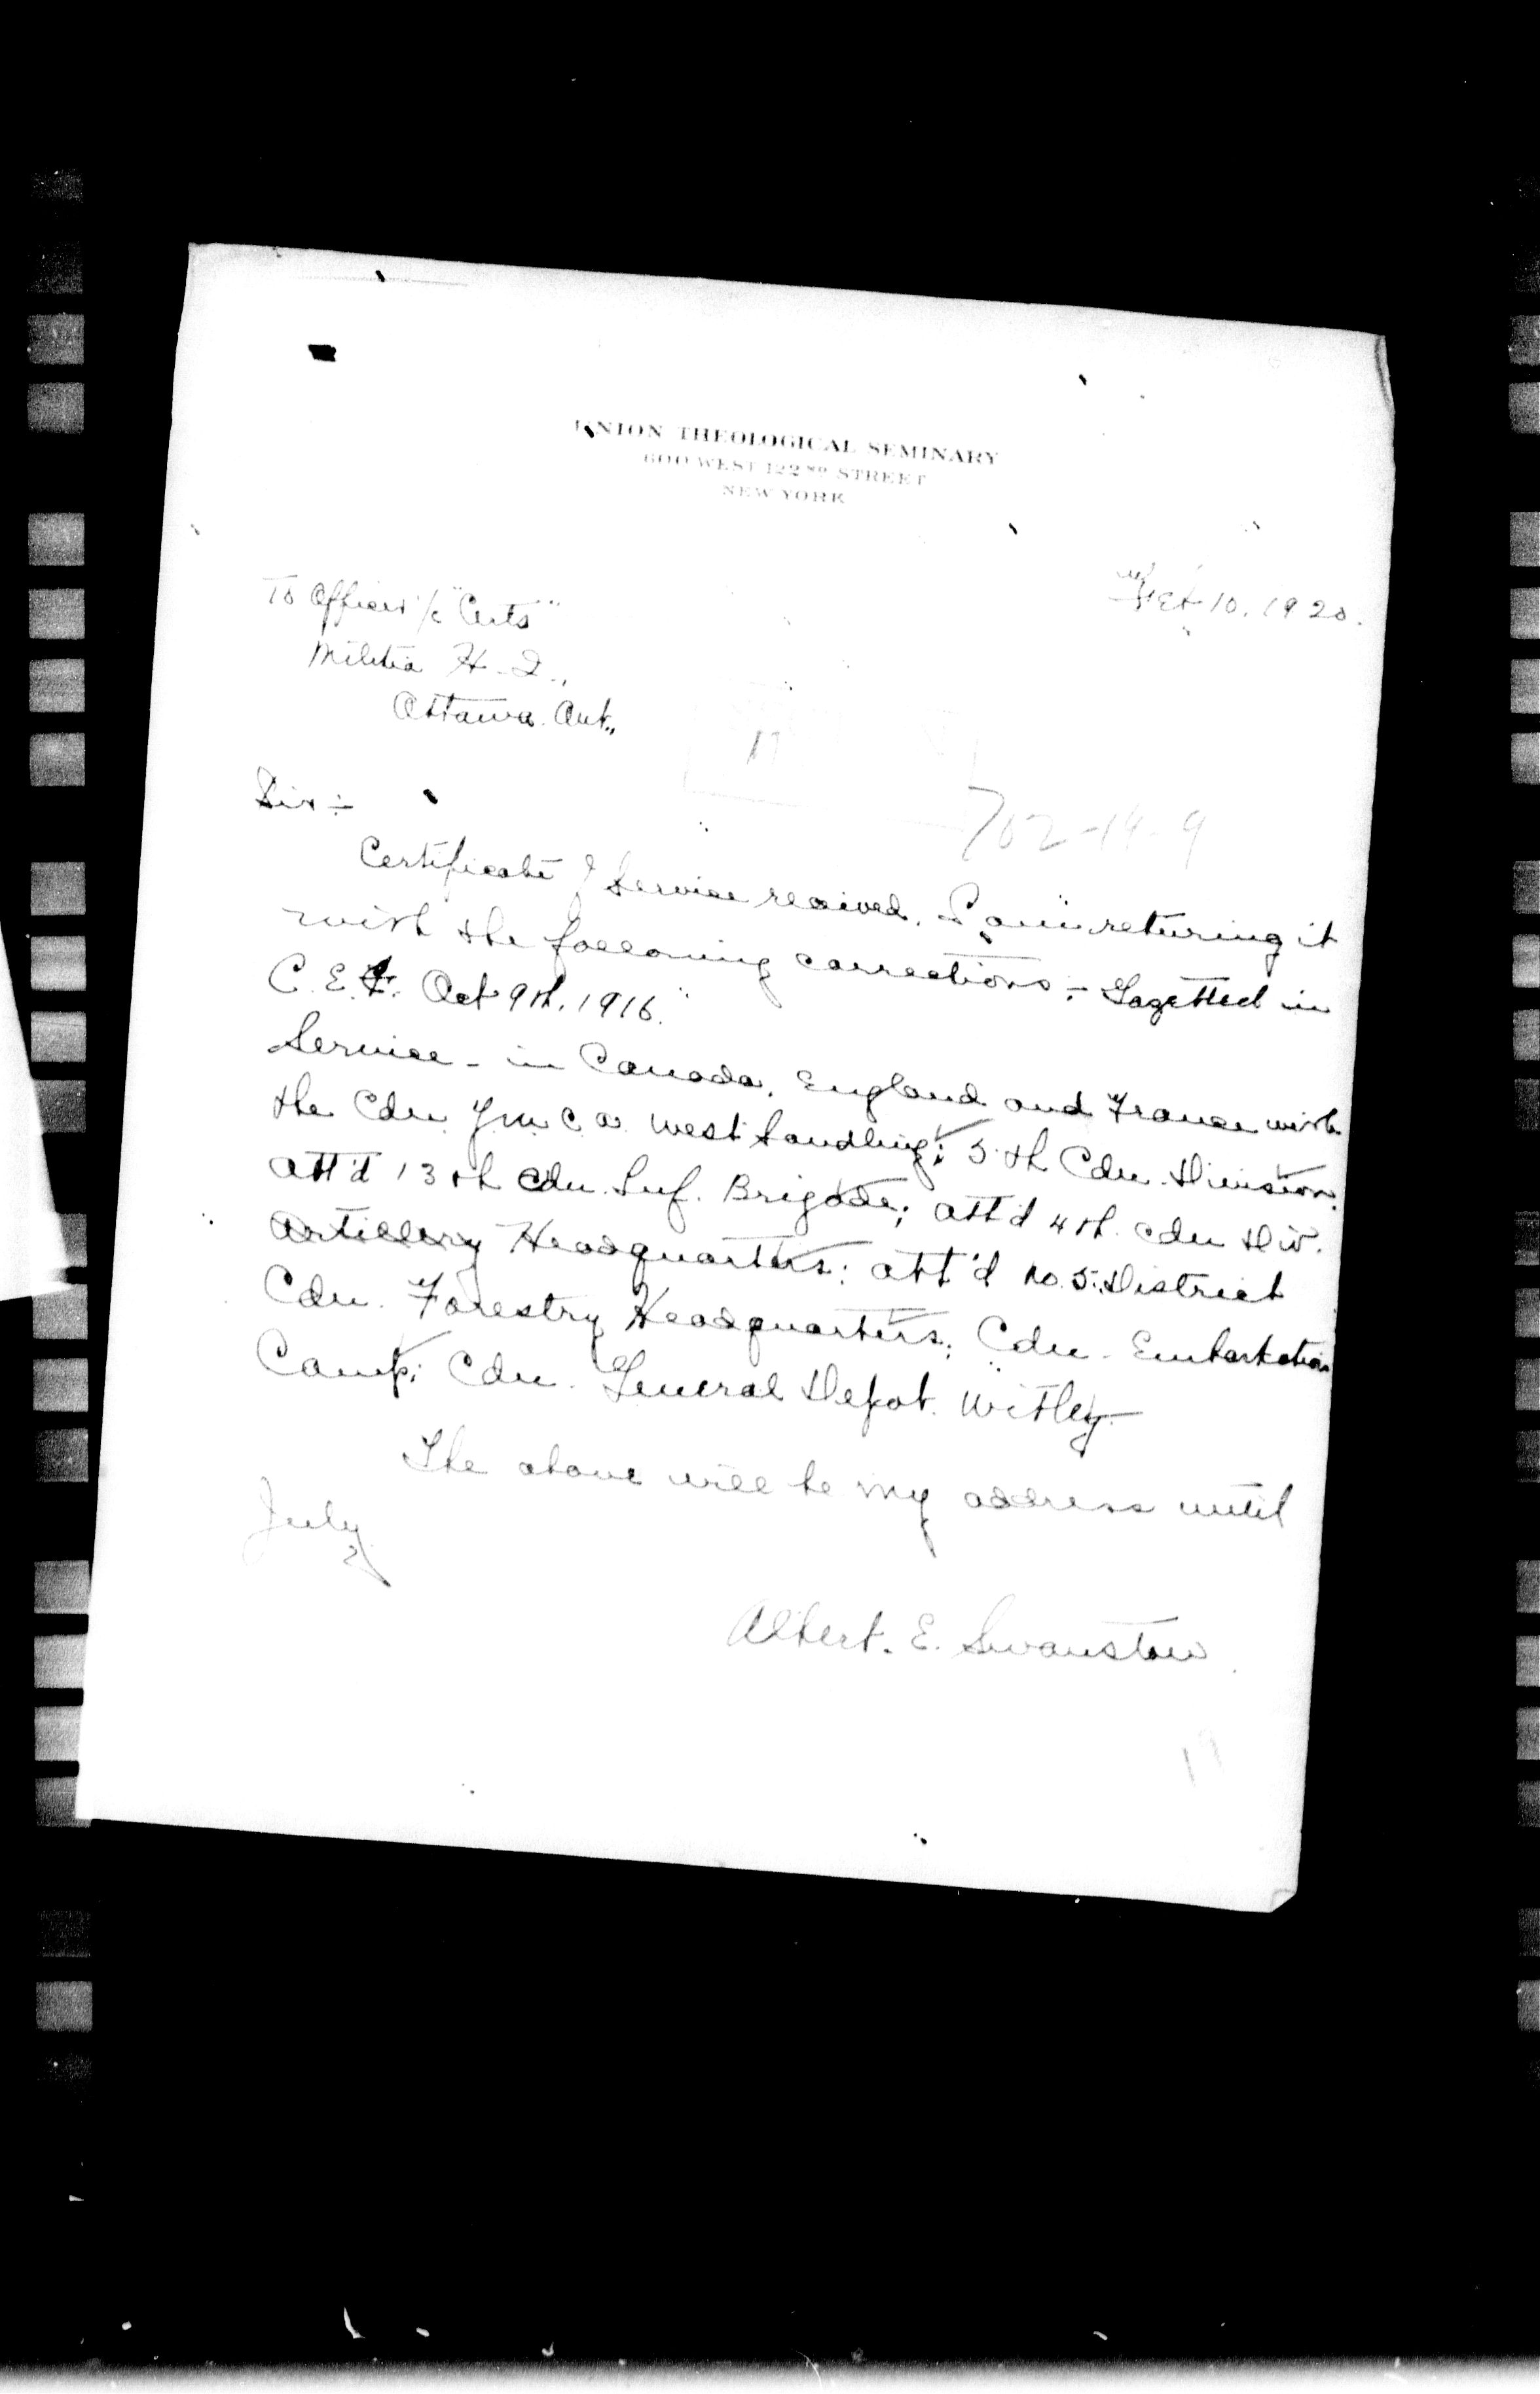 UNION THEOLOGICAL SEMINARY
600 WEST 122ND STREET
NEW YORK
10, 1920.
To Officer i/c "Certs"
Militia H.Q.,
Ottawa. Ont.,
17
Sir:-
702-14-9
Certificate of Service received. I am returning it
with the following corrections:- Gazetted in
C.E.F. Oct 9th, 1916.
Service - in Canada, England and France with
the Cdn Y.M.C.A. West Sandling; 5th Cdn. Division,
att'd 13th Cdn. Inf. Brigade; att'd 4th. Cdn Div.
Artillery Headquarters; att'd No. 5. District
Cdn. Forestry Headquarters; Cdn. Embarkation
Camp; Cdn. General Depot. Witley.
The above will be my address until
July
Albert. E. Swanston.